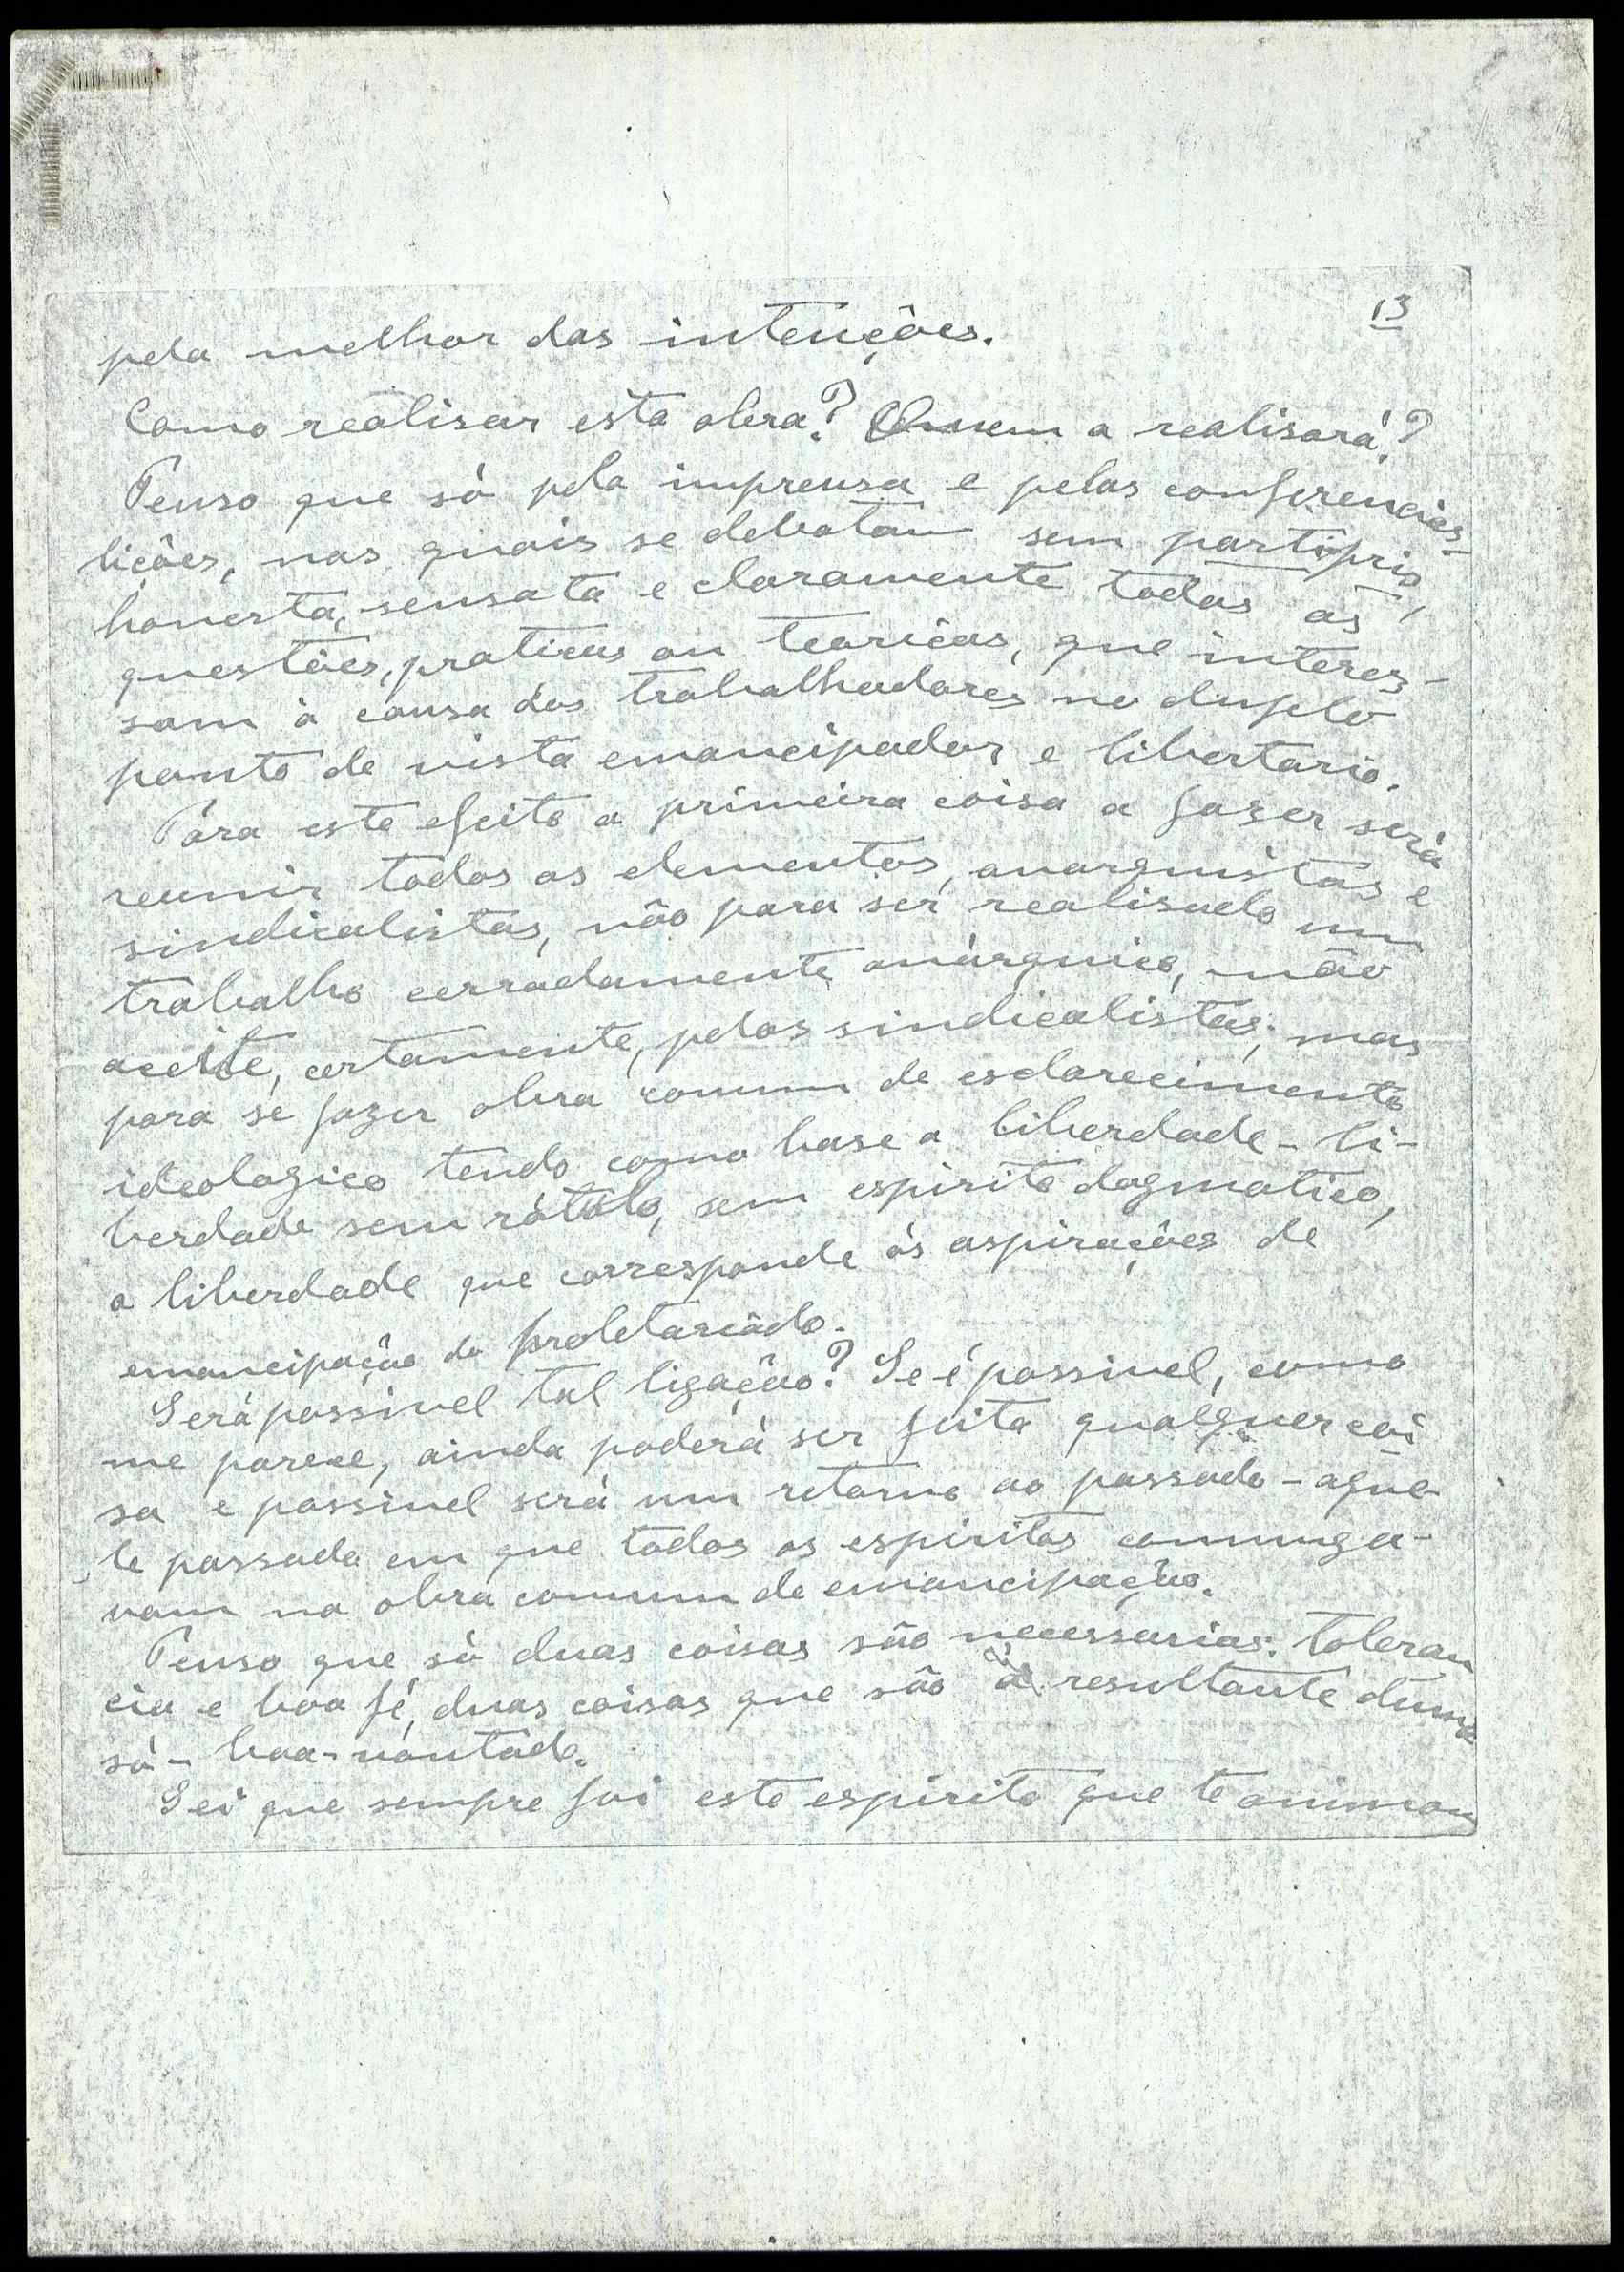 13
pela melhor das intenções.
Como realisar esta obra? Quem a realisará?
Penso que só pela imprensa e pelas conferencias-
lições, nas quais se debatam sem partipris,
honesta, sensata e claramente todas as
questões, praticas ou teoricas, que interes-
sam à causa dos trabalhadores no duplo
ponto de vista emancipador e libertario.
Pára este efeito a primeira coisa a fazer será
reunir todos os elementos, anarquistas e
sindicalistas, não para ser realisado um
trabalho cerradamente anárquico, não
aceite, certamente, pelos sindicalistas; mas
para se fazer obra comum de esclarecimento
ideologico tendo como base a liberdade - li-
berdade sem rótulo, sem espirito dogmatico,
a liberdade que corresponde ás aspirações de
emancipação do proletariado.
Será possivel tal ligação? Se é possivel, como
me parece, ainda poderá ser feita qualquer coi
sa e possivel será um retorno ao passado - aque-
le passado em que todos os espiritos comunga-
vam na obra comum de emancipação.
Penso que só duas coisas são necessarias: toleran
cia e boa fé, duas coisas que são a resultante duma
só - boa-vontade.
Sei que sempre foi este espirito que te animou